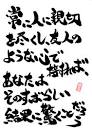 常に人に親切
を尽くし、友人の
ような心で
接すれば、
あなたは
そのすばらしい
結果に驚くことだろう